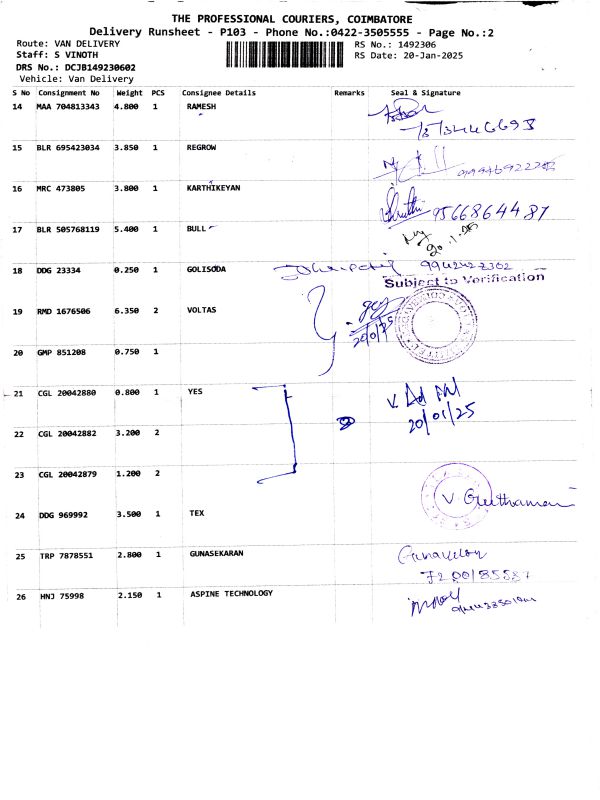 THE PROFESSIONAL COURIERS, COIMBATORE
Delivery Runsheet - P103 - Phone No.:0422-3505555 - Page No.:2
Route: VAN DELIVERY RS No.: 1492306
Staff: S VINOTH RS Date: 20-Jan-2025
DRS No.: DCJB149230602
Vehicle: Van Delivery
S No Consignment No Weight PCS Consignee Details Remarks Seal & Signature
14 MAA 704813343 4.800 1 RAMESH
15 BLR 695423034 3.850 1 REGROW
16 MRC 473805 3.800 1 KARTHIKEYAN
9566864487
17 BLR 505768119 5.400 1 BULL
20.1.25
18 DDG 23334 0.250 1 GOLISODA
Subject to Verification
19 RMD 1676506 6.350 2 VOLTAS
20 GMP 851208 0.750 1
21 CGL 20042880 0.800 1 YES
20/01/25
22 CGL 20042882 3.200 2
23 CGL 20042879 1.200 2
24 DDG 969992 3.500 1 TEX
25 TRP 7878551 2.800 1 GUNASEKARAN
26 HNJ 75998 2.150 1 ASPINE TECHNOLOGY